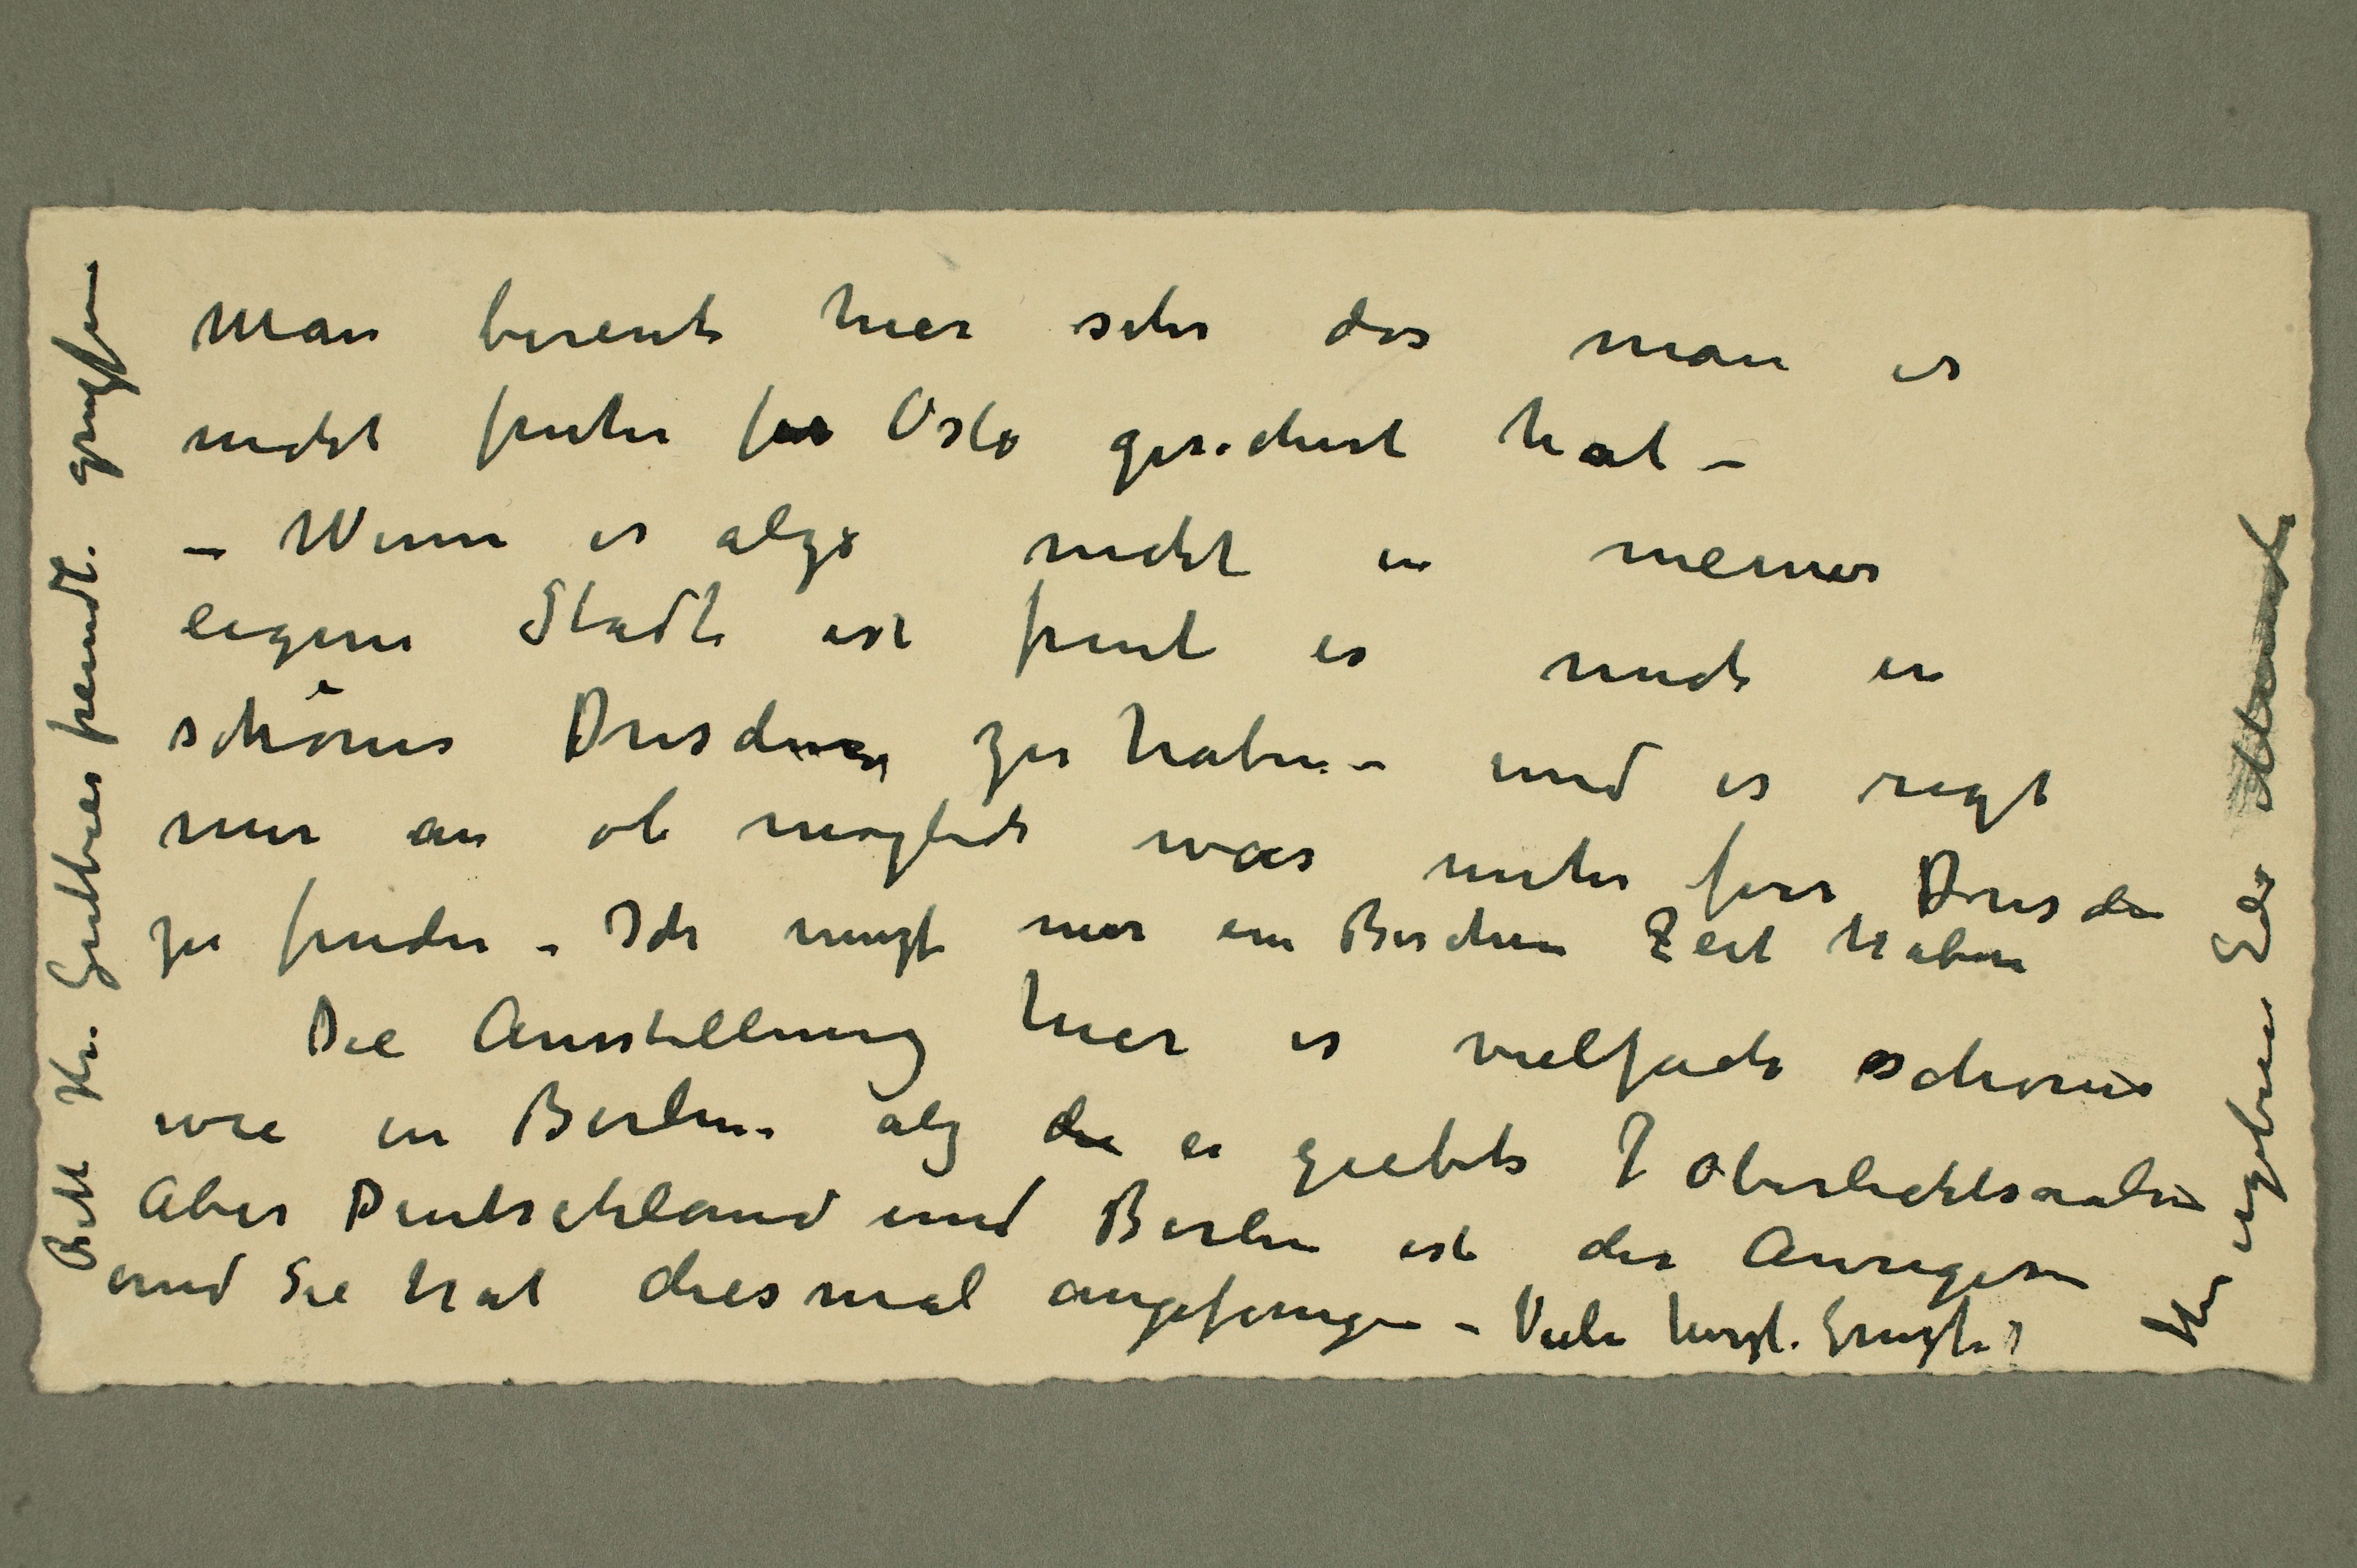 Man bereut hier sehr das man es
nicht früher für Oslo gesichert hat –
– Wenn es algo nicht in meiner
eigene Stadt ist freut es mich in
schönes Dresden zu haben – und es regt
mir an ob möglich was mehr fürs Dresden
zu finden – Ich mugte nur ein Bischen Zeit haben
Die Ausstellung hier is vielfach schöner
wie in Berlin alz da es giebts 7 Oberlichtsaalen
Aber Deutschland und Berlin ist der Anreger
und Sie hat diesmal angefangen – Viele herzl. Grugte
Ihr ergebner Ed
Bitt Hr. Gutbier freundl. grugen